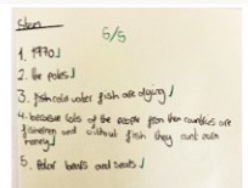 5/5
1. 1970
2. the poles
3. fish cold water fish are dying
4. because lots of the people from their countries are
fishermen and without fish they cant earn
money
5. Polar bears and seals